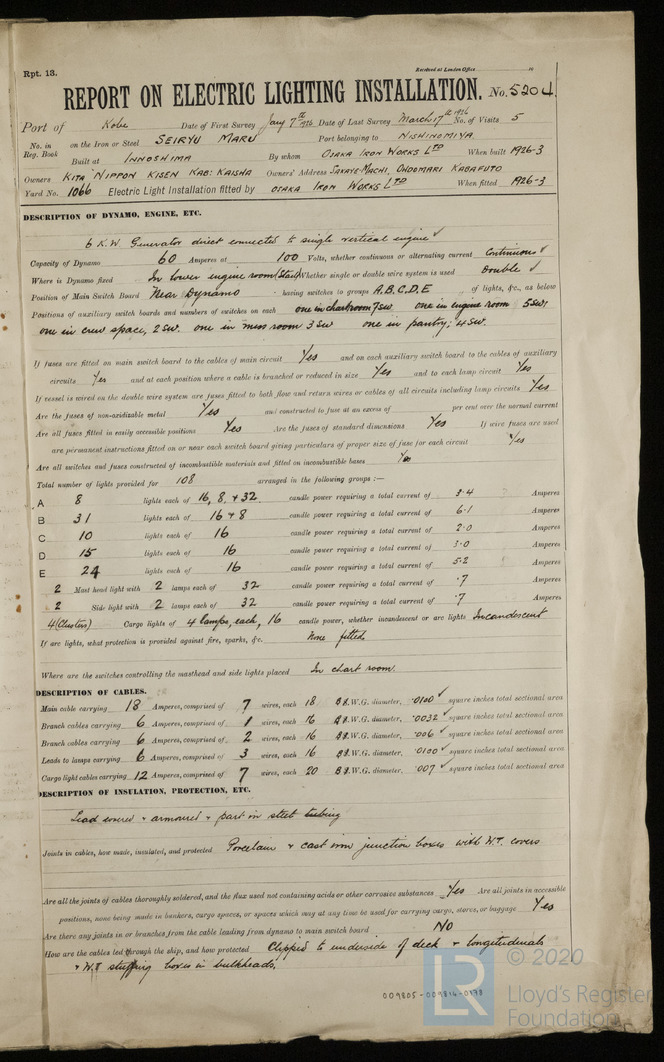 Rpt. 13.
Received at London Office
REPORT ON ELECTRIC LIGHTING INSTALLATION. No. 5204.
Port of Kobe Date of First Survey Jany 7th 1926 Date of Last Survey March 17th 1926 No. of Visits 5
No. in Reg. Book on the Iron or Steel SEIRYU MARU Port belonging to NISHINOMIYA
Built at INNOSHIMA By whom OSAKA IRON WORKS LTD When built 1926-3
Owners KITA NIPPON KISEN KAB: KAISHA Owners' Address SAKAYE-MACHI, OHDOMARI KABAFUTO
Yard No. 1066 Electric Light Installation fitted by OSAKA IRON WORKS LTD When fitted 1926-3
DESCRIPTION OF DYNAMO, ENGINE, ETC.
6 K.W. Generator direct connected to single vertical engine ✓
Capacity of Dynamo 60 Amperes at 100 Volts, whether continuous or alternating current Continuous ✓
Where is Dynamo fixed In lower engine room (Star) Whether single or double wire system is used Double ✓
Position of Main Switch Board Near Dynamo having switches to groups A, B, C, D, E of lights, &c., as below
Positions of auxiliary switch boards and numbers of switches on each one in chartroom 7 sw. one in engine room 5 sw,
one in crew space, 2 sw. one in mess room 3 sw one in pantry; 4 sw.
If fuses are fitted on main switch board to the cables of main circuit Yes and on each auxiliary switch board to the cables of auxiliary
circuits Yes and at each position where a cable is branched or reduced in size Yes and to each lamp circuit Yes
If vessel is wired on the double wire system are fuses fitted to both flow and return wires or cables of all circuits including lamp circuits Yes
Are the fuses of non-oxidizable metal Yes and constructed to fuse at an excess of per cent over the normal current
Are all fuses fitted in easily accessible positions Yes Are the fuses of standard dimensions Yes If wire fuses are used
are permanent instructions fitted on or near each switch board giving particulars of proper size of fuse for each circuit Yes
Are all switches and fuses constructed of incombustible materials and fitted on incombustible bases Yes
Total number of lights provided for 108 arranged in the following groups :—
A 8 lights each of 16, 8, + 32 candle power requiring a total current of 3.4 Amperes
B 31 lights each of 16 + 8 candle power requiring a total current of 6.1 Amperes
C 10 lights each of 16 candle power requiring a total current of 2.0 Amperes
D 15 lights each of 16 candle power requiring a total current of 3.0 Amperes
E 24 lights each of 16 candle power requiring a total current of 5.2 Amperes
2 Mast head light with 2 lamps each of 32 candle power requiring a total current of .7 Amperes
2 Side light with 2 lamps each of 32 candle power requiring a total current of .7 Amperes
4 (Clusters) Cargo lights of 4 lamps, each, 16 candle power, whether incandescent or arc lights Incandescent
If arc lights, what protection is provided against fire, sparks, &c. None fitted
Where are the switches controlling the masthead and side lights placed In chart room.
DESCRIPTION OF CABLES.
Main cable carrying 18 Amperes, comprised of 7 wires, each 18 W.G. diameter, .0100 ✓ square inches total sectional area
Branch cables carrying 6 Amperes, comprised of 1 wires, each 16 W.G. diameter, .0032 ✓ square inches total sectional area
Branch cables carrying 6 Amperes, comprised of 2 wires, each 16 W.G. diameter, .006 ✓ square inches total sectional area
Leads to lamps carrying 6 Amperes, comprised of 3 wires, each 16 W.G. diameter, .0100 ✓ square inches total sectional area
Cargo light cables carrying 12 Amperes, comprised of 7 wires, each 20 W.G. diameter, .007 ✓ square inches total sectional area
DESCRIPTION OF INSULATION, PROTECTION, ETC.
Lead covered + armoured + part in steel tubing
Joints in cables, how made, insulated, and protected Porcelain + cast iron junction boxes with W.T. covers
Are all the joints of cables thoroughly soldered, and the flux used not containing acids or other corrosive substances Yes Are all joints in accessible
positions, none being made in bunkers, cargo spaces, or spaces which may at any time be used for carrying cargo, stores, or baggage Yes
Are there any joints in or branches from the cable leading from dynamo to main switch board NO
How are the cables led through the ship, and how protected Clipped to underside of deck + longitudinals
+ W.T. stuffing boxes in bulkheads.
© 2020
LR
Lloyd's Register
Foundation
009805-009816-0178